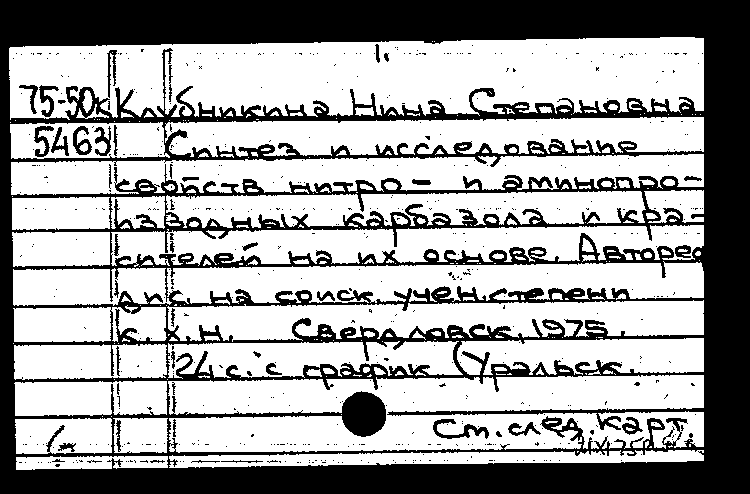 1.
75-50к Клубникина, Нина Степановна
5463 Синтез и исследование
свойств нитро- и аминопро-
изводных карбазола и кра-
сителей на их основе. Авторед
дис. на соиск. учен. степени
к. х. н. Свердловск, 1975.
24 с. с график (Уральск.
См. след. карт